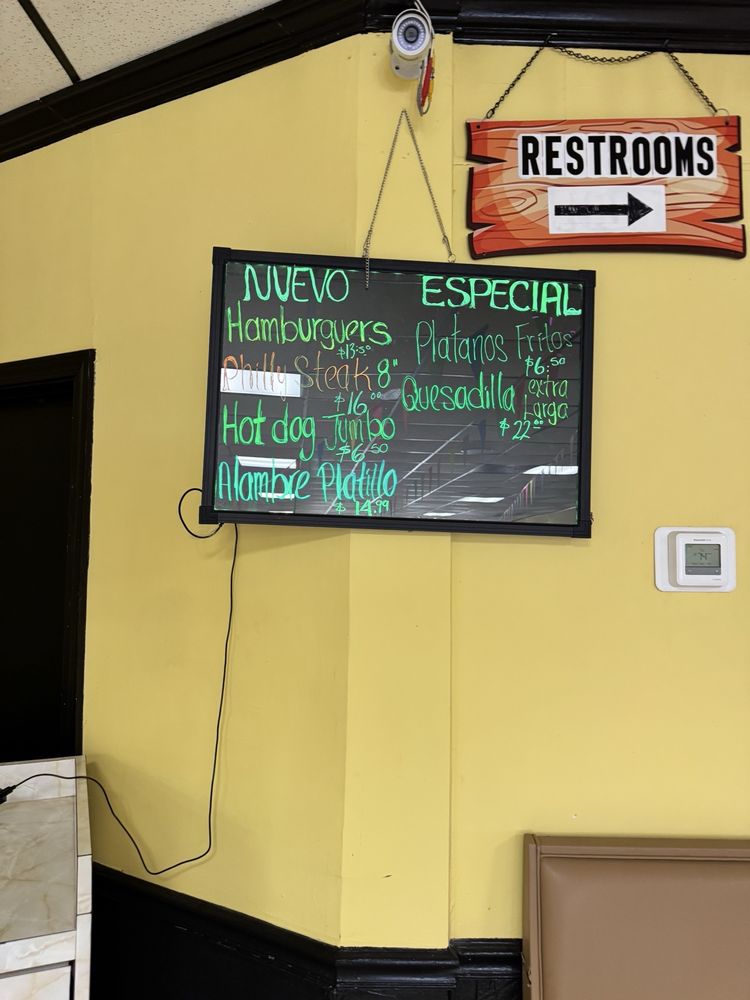 RESTROOMS
NUEVO
Hamburguers
$13.50
Philly Steak 8"
$16.00
Hot dog Jumbo
$6.50
Alambre Platillo
$14.99
ESPECIAL
Platanos Fritos
$6.50
Quesadilla extra
Larga
$22.00